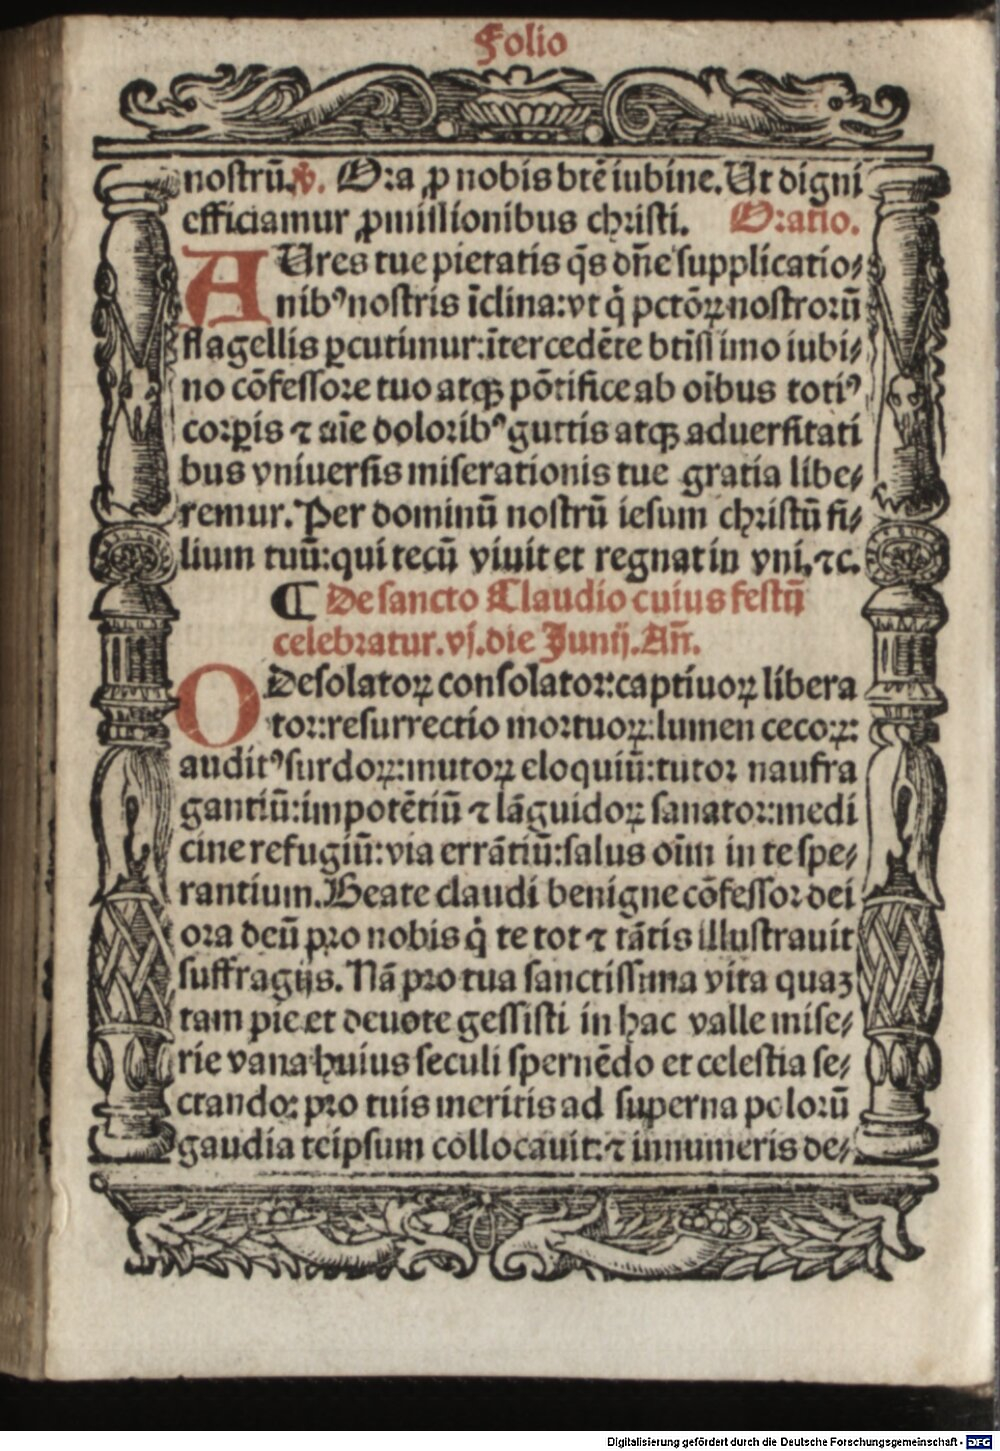 Folio
nostrū. ℣. Ora ꝓ nobis btē iubine. Ut digni
efficiamur ꝓmissionibus christi. Oratio.
AUres tue pietatis q̄s dn̄e supplicatio⸗
nibꝰ nostris īclina: vt q̇ pctōꝝ nostrorū
flagellis ꝑcutimur: ītercedēte btīssimo iubi⸗
no cōfessore tuo atqꝫ pōtifice ab oībus totiꝰ
corꝑis ⁊ aīe doloribꝰ guttis atqꝫ aduersitati
bus vniuersis miserationis tue gratia libe⸗
remur. Per dominū nostrū iesum christū fi⸗
lium tuū: qui tecū viuit et regnat in vni. ⁊c.
¶ De sancto Claudio cuius festū
celebratur. vj. die Junij. An̄.
O Desolatoꝝ consolator: captiuoꝝ libera
tor: resurrectio mortuoꝝ: lumen cecoꝝ:
auditꝰ surdoꝝ: mutoꝝ eloquiū: tutor naufra
gantiū: impotētiū ⁊ lāguidoꝝ sanator: medi
cine refugiū: via errātiū: salus oīm in te spe⸗
rantium. Beate claudi benigne cōfessor dei
ora deū pro nobis q̇ te tot ⁊ tātis illustrauit
suffragijs. Nā pro tua sanctissima vita quaꝫ
tam pie et deuote gessisti in hac valle mise⸗
rie vana huius seculi spernēdo et celestia se⸗
ctando: pro tuis meritis ad superna polorū
gaudia teipsum collocauit: ⁊ innumeris de⸗
Digitalisierung gefördert durch die Deutsche Forschungsgemeinschaft - DFG